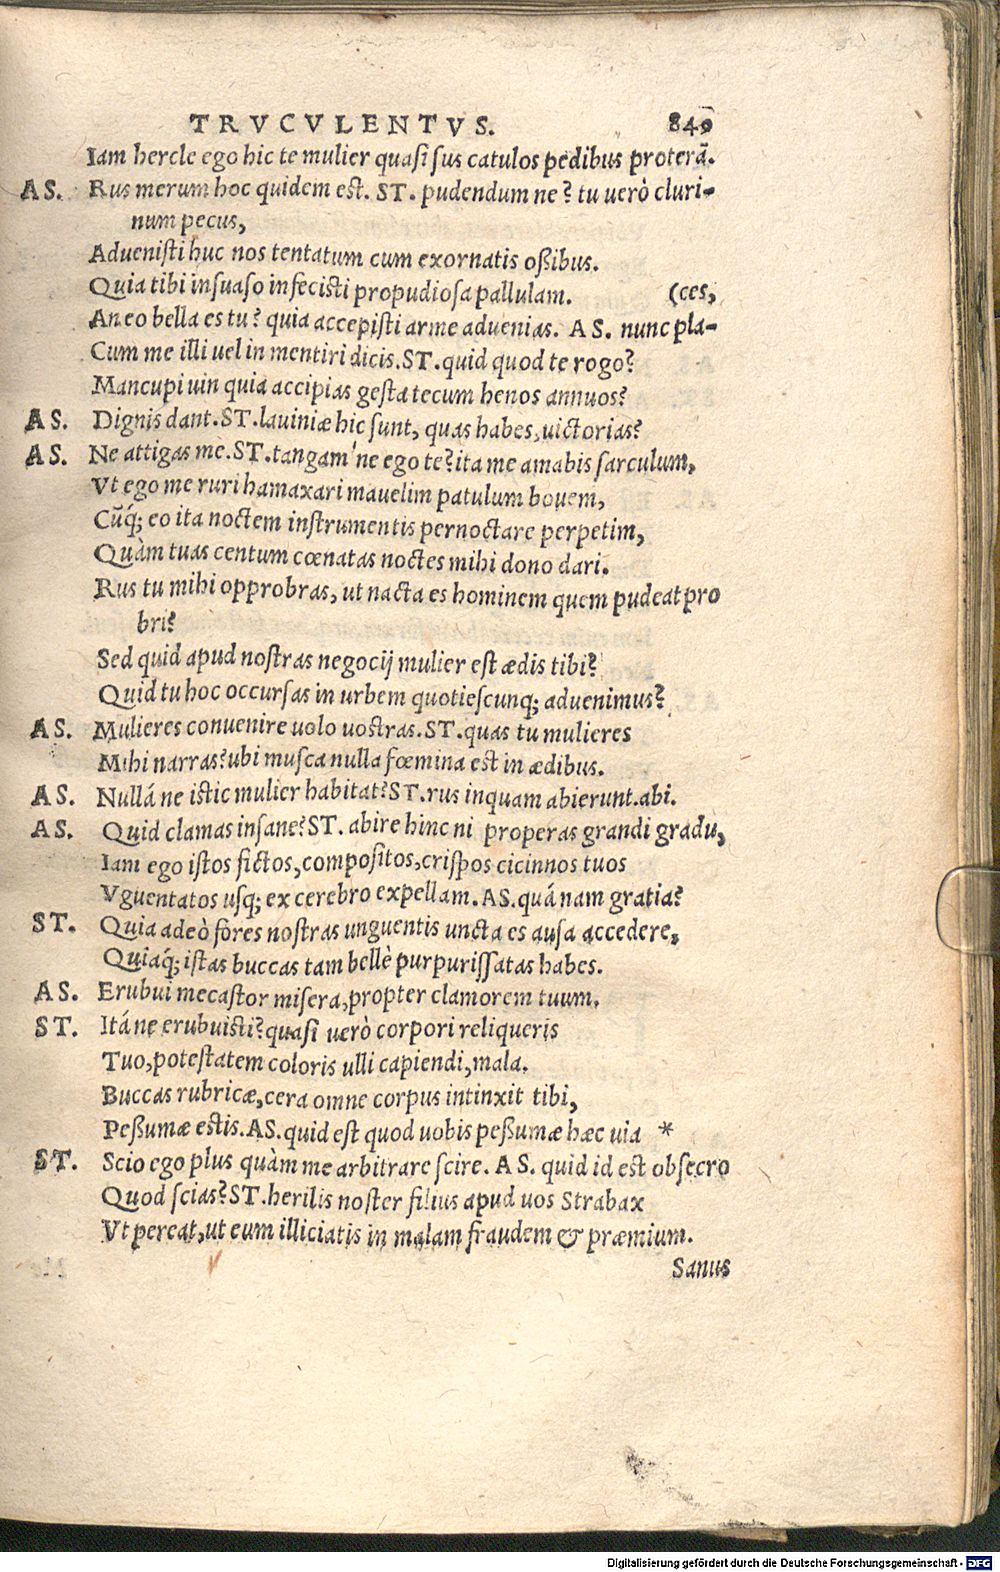 TRVCVLENTVS. 840
Iam hercle ego hic te mulier quasi sus catulos pedibus proterā.
AS. Rus merum hoc quidem est. ST. pudendum ne? tu uerò cluri-
num pecus,
Aduenisti huc nos tentatum cum exornatis oßibus.
Quia tibi insuaso infecisti propudiosa pallulam. (ces,
An eo bella es tu? quia accepisti arme aduenias. AS. nunc pla-
Cum me illi uel in mentiri dicis. ST. quid quod te rogo?
Mancupi uin quia accipias gesta tecum henos annuos?
AS. Dignis dant. ST. lauiniæ hic sunt, quas habes, uictorias?
AS. Ne attigas me. ST. tangam'ne ego te? ita me amabis sarculum,
Vt ego me ruri hamaxari mauelim patulum bouem,
Cūq́; eo ita noctem instrumentis pernoctare perpetim,
Quàm tuas centum cœnatas noctes mihi dono dari.
Rus tu mihi opprobras, ut nacta es hominem quem pudeat pro
bri?
Sed quid apud nostras negocij mulier est ædis tibi?
Quid tu hoc occursas in urbem quotiescunq; aduenimus?
AS. Mulieres conuenire uolo uostras. ST. quas tu mulieres
Mihi narras? ubi musca nulla fœmina est in ædibus.
AS. Nullá ne istic mulier habitat? ST. rus inquam abierunt. abi.
AS. Quid clamas insane? ST. abire hinc ni properas grandi gradu,
Iam ego istos fictos, compositos, crispos cicinnos tuos
Vguentatos usq; ex cerebro expellam. AS. quánam gratia?
ST. Quia adeò fores nostras unguentis uncta es ausa accedere,
Quiaq́; istas buccas tam bellè purpurissatas habes.
AS. Erubui mecastor misera, propter clamorem tuum.
ST. Itáne erubuisti? quasi uerò corpori reliqueris
Tuo, potestatem coloris ulli capiendi, mala.
Buccas rubricæ, cera omne corpus intinxit tibi,
Peßumæ estis. AS. quid est quod uobis peßumæ hæc uia *
ST. Scio ego plus quàm me arbitrare scire. AS. quid id est obsecro
Quod scias? ST. herilis noster filius apud uos Strabax
Vt pereat, ut eum illiciatis in malam fraudem & præmium.
Sanus
Digitalisierung gefördert durch die Deutsche Forschungsgemeinschaft - DFG